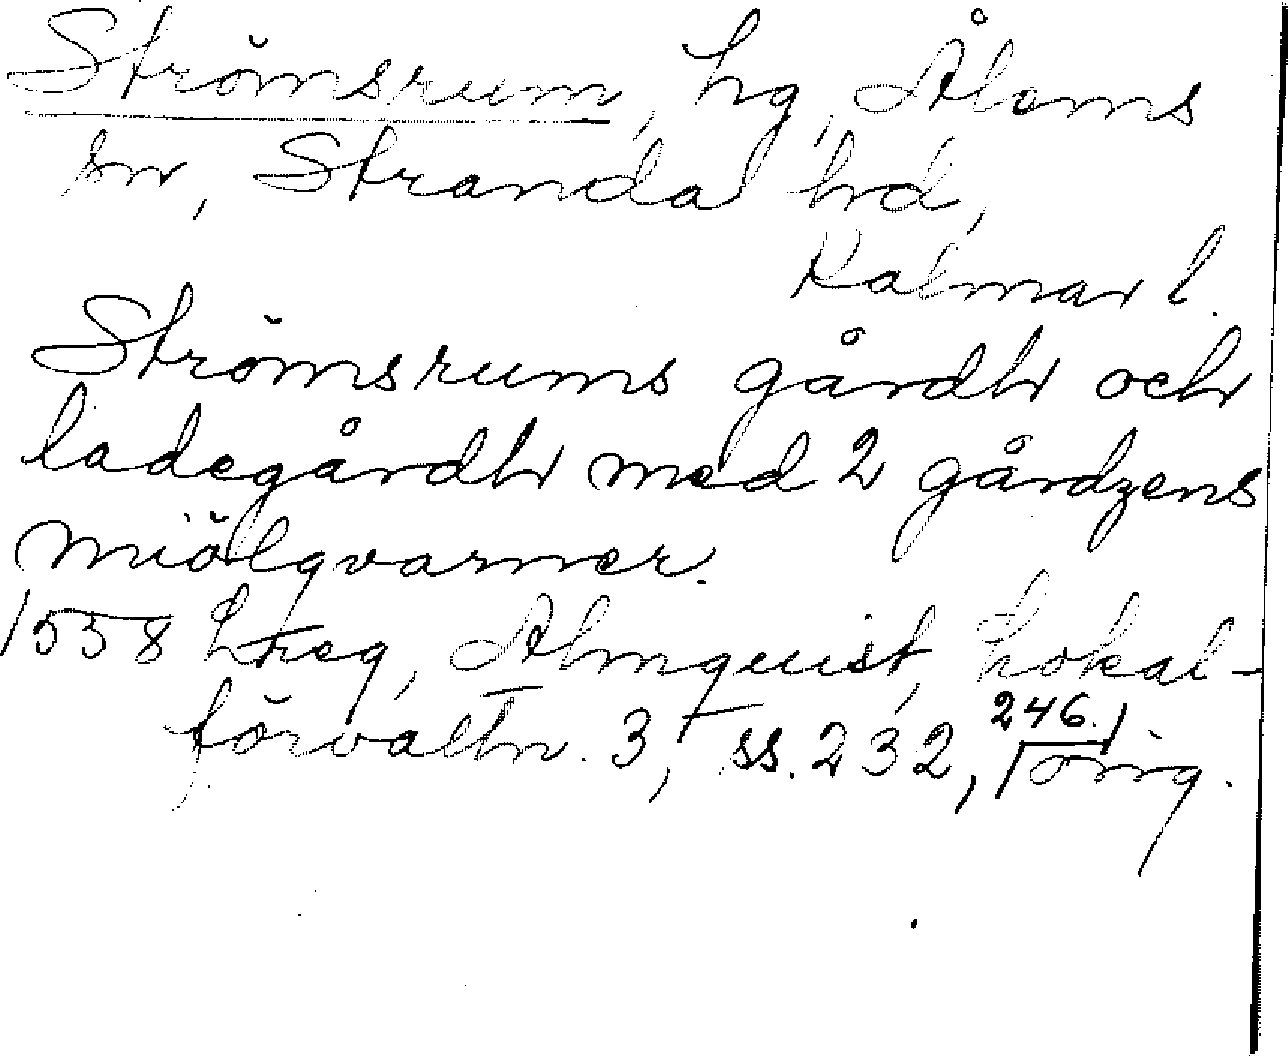 Strömsrum, hg, Ålems
sn, Stranda hd,
Kalmar l.
Strömsrums gårdh och
ladegårdh med 2 gårdzens
miölqvarner.
1558 Lreg, Almquist, Lokal-
förvaltn. 3, ss. 232, 246. orig.